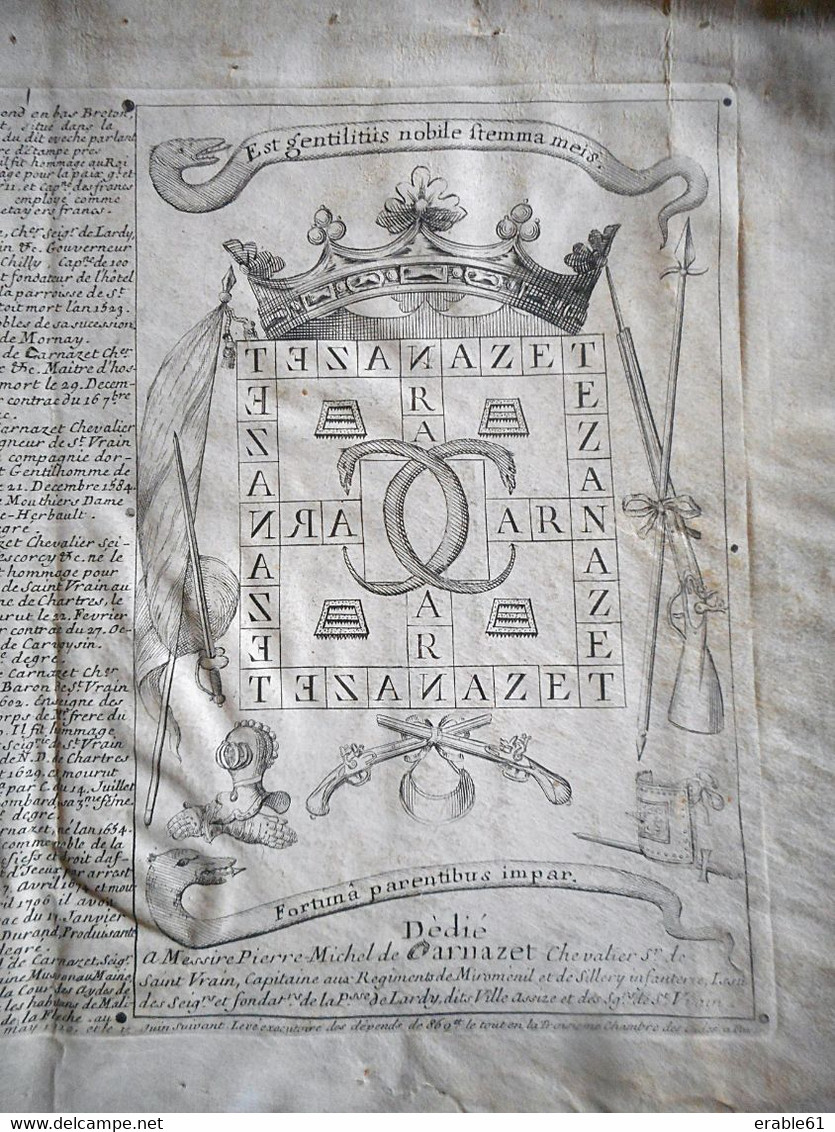 ond en bas Breton,
t, situé dans la
du dit eveché parlant
re détampe pres
il fit hommage au Roi
age pour la paix q. et
et Cap.ne des francs
employé comme
etayers francs.
Ch.er Seig.r de Lardy,
in &c. Gouverneur
Chilly, Cap.ne de 100
t fondateur de l'hôtel
la parroisse de S.t
toit mort l'an 1523.
obles de sa sucession
de Mornay.
de Carnazet Ch.er
&c. Maitre d'hos-
mort le 29. Decem-
r contrac du 16 7.bre
arnazet Chevalier
gneur de S.t Vrain
compagnie d'or-
t Gentishomme de
e 21. Decembre 1584.
e Mouthiers Dame
e-Herbault.
egré.
zet Chevalier Sei-
escorcy &c. né le
t hommage pour
de Saint Vrain au
ne de Chartres, le
ourut le 22. Fevrier
r contrac du 27. Oc-
de Carvoysin.
e degré.
e Carnazet Ch.er
Baron de S.t Vrain
1602. Enseigne des
corps de M.r frere du
Il fit hommage
Seig.rie de S.t Vrain
de N.D. de Chartres
t 1629. et mourut
par C. du 14. Juillet
ombard sa 3.me féme.
e degré.
rnazet, né lan 1634.
comme noble de la
fiefs et droit daf-
t d'Iceux par arrest
7. Avril et mou
ril 1706 il avou
rac du 17 Janvier
Durand, Produisante
degré.
de Carnazet, Seig.r
aine
la Cour des Aydes de
les habitans de Mali-
de la Fleche . au
may et le 12
Est gentilitiis nobile stemma meis.
TEZANAZET
E R E
Z A Z
A A
NARA ARN
A A
Z A Z
E R E
TEZANAZET
Fortunâ parentibus impar.
Dèdié
A Messire Pierre-Michel de Carnazet Chevalier S.r de
Saint Vrain, Capitaine aux Regiments de Miromenil et de Sillery infanterie, Issu
des Seig.rs et fondat.rs de la P.sse de Lardy, dits Ville Assize et des Sg.rs de S.t Vrain
Juin Suivant Levé executoire des dépends de 869.tt le tout en la Troisieme Chambre des
delcampe.net
erable61